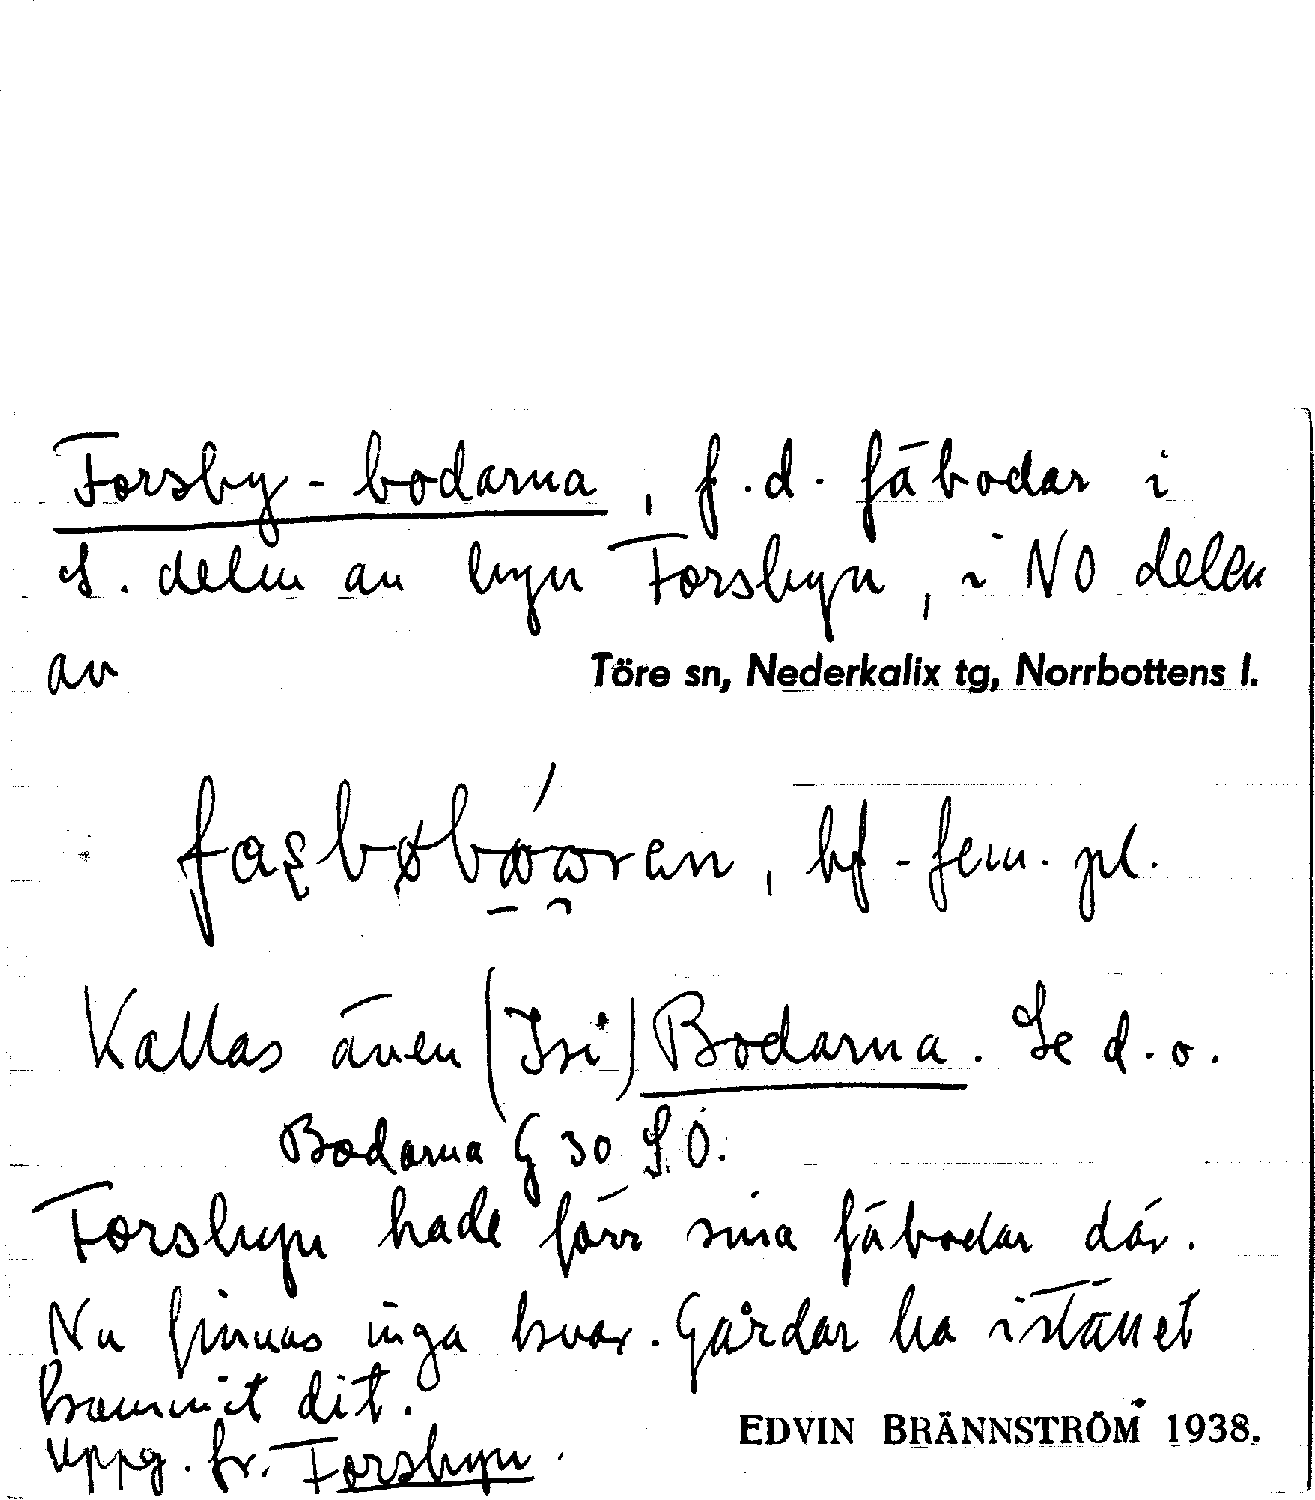 Forsby-bodarna, f.d. fäbodar i
S. delen av byn Forsbyn, i NO delen
av Töre sn, Nederkalix tg, Norrbottens l.
, bf. fem. pl.
Kallas även (Isi) Bodarna. Se d.o.
Bodarna G 30 SO.
Forsbyn hade förr sina fäbodar där.
Nu finnas inga kvar. Gårdar ha istället
kommit dit.
Uppg. fr. Forsbyn.
EDVIN BRÄNNSTRÖM 1938.